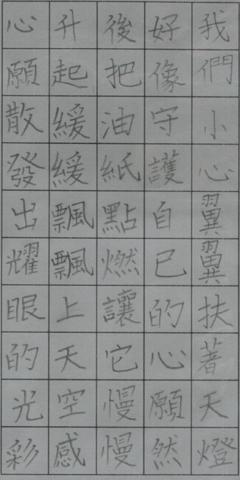 我們小心翼翼扶著天燈
好像守護自已的心願然
後把油紙點燃讓它慢慢
升起緩緩飄飄上天空感
心願散發出耀眼的光彩